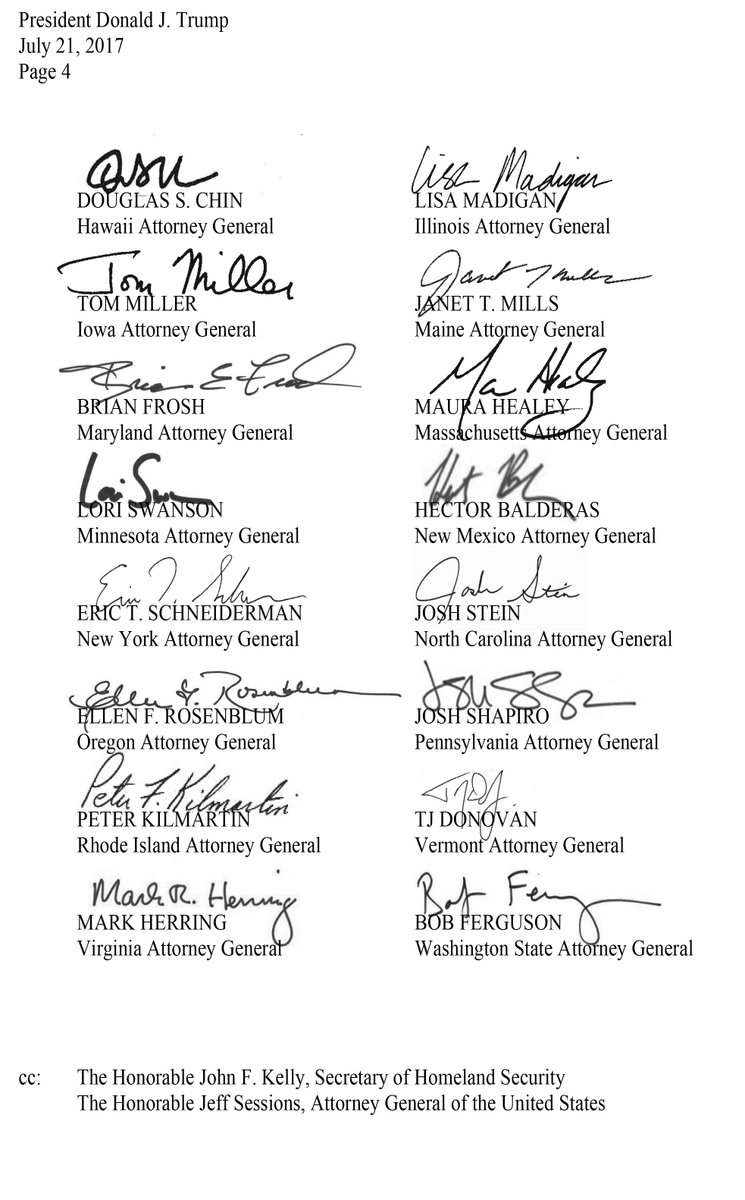 President Donald J. Trump
July 21, 2017
Page 4
Lisa Madigan
DOUGLAS S. CHIN
LISA MADIGAN
Hawaii Attorney General
Illinois Attorney General
Tom Miller
Janet T Mills
TOM MILLER
JANET T. MILLS
Iowa Attorney General
Maine Attorney General
Brian E Frosh
Maura Healey
BRIAN FROSH
MAURA HEALEY
Maryland Attorney General
Massachusetts Attorney General
Lori Swanson
LORI SWANSON
HECTOR BALDERAS
Minnesota Attorney General
New Mexico Attorney General
Eric T. Schneiderman
Josh Stein
ERIC T. SCHNEIDERMAN
JOSH STEIN
New York Attorney General
North Carolina Attorney General
Ellen F. Rosenblum
ELLEN F. ROSENBLUM
JOSH SHAPIRO
Oregon Attorney General
Pennsylvania Attorney General
Peter F. Kilmartin
PETER KILMARTIN
TJ DONOVAN
Rhode Island Attorney General
Vermont Attorney General
Mark R. Herring
Bob Ferguson
MARK HERRING
BOB FERGUSON
Virginia Attorney General
Washington State Attorney General
cc: The Honorable John F. Kelly, Secretary of Homeland Security
The Honorable Jeff Sessions, Attorney General of the United States